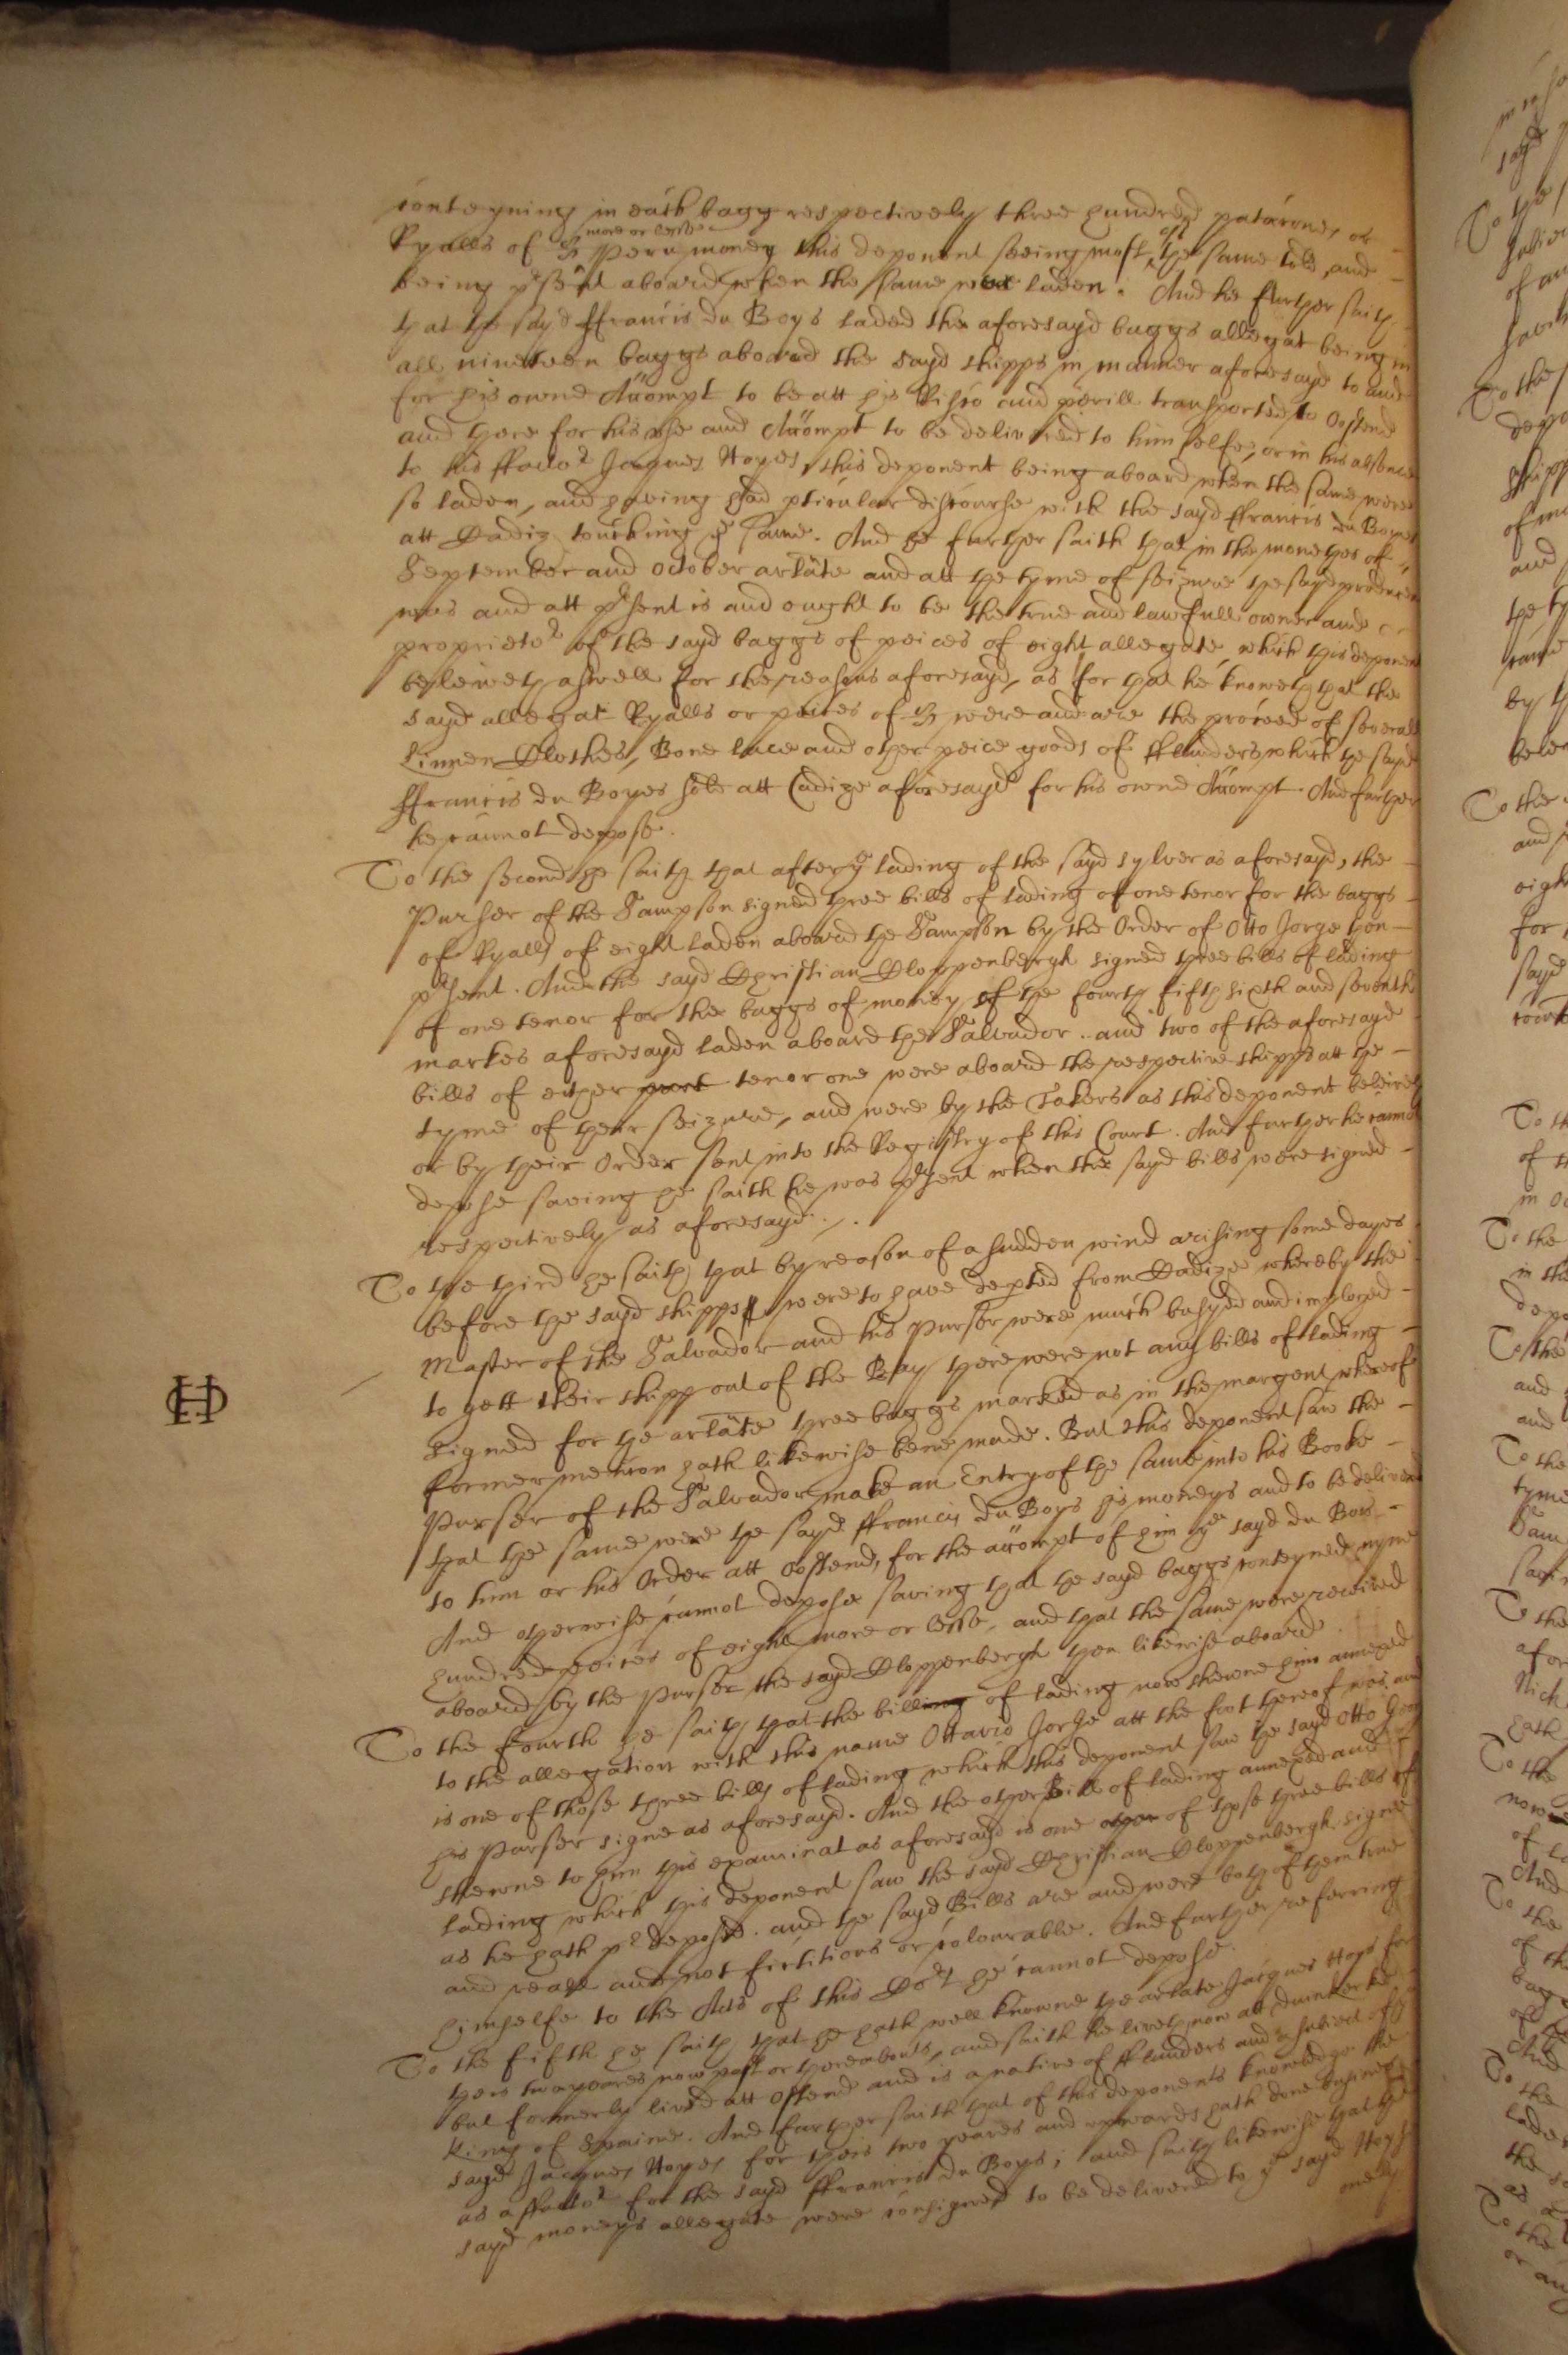 conteyning in each bagg respectively three hundred patacone, or
more or lesse of
Ryalls of 8 Peru money this deponent seeing most the same told, and
being present aboard when the same were laden. And he further saith
that the sayd ffrancis du Boys laded the aforesayd baggs allegat being in
all nineteen baggs aboard the sayd shipps in manner aforesayd to and
for his owne Accompt to be att his Risco and perill transported to Ostend
and there for his use and Accompt to be delivered to him selfe, or in his absence
to his ffactor Jaques Hoyes, this deponent being aboard when the same were
so laden, and having had pticular discourse with the sayd ffrancis du Boyes
att Cadiz touching ye same. And he further saith that in the monethes of
September and October arlate and att the tyme of seizure the sayd producent
was and att psent is and ought to be the true and lawfull owner and
proprietor of the sayd baggs of peices of eight allegate, which this deponent
beleiveth aswell for the reasons aforesayd, as for that he knoweth that the
sayd allegat Ryalls or peices of 8 were and are the proceed of severall
Linnen Clothes, Bone lace and other peice goods of fflanders which the sayd
ffrancis du Boyes sold att Cadize aforesayd for his owne Accompt. And further
he cannot depose.
To the second he saith that after ye lading of the sayd sylver as aforesayd, the
Purser of the Sampson signed three bills of lading of one tenor for the baggs
of Ryalls of eight laden aboard the Sampson by the Order of Otto Jorge then
psent. And the sayd Christian Cloppenbergh signed three bills of lading
of one tenor for the baggs of money of the fourth fifth sixth and seventh
markes aforesayd laden aboard the Salvador. and two of the aforesayd
bills of either tenor one were aboard the respective shipps att the
tyme of their seizure, and were by the Takers as this deponent beleiveth
or by their Order sent into the Registry of this Court. And further he cannot
depose saving he saith he was psent when the sayd bills were signed
respectively as aforesayd./.
To the third he saith that by reason of a sudden wind arising some dayes
before the sayd shipps were to have depted from Cadize whereby the
Master of the Salvador and his Purser were much busyed and imployed
to gett their shipp out of the Bay there were not any bills of lading
signed for the arlate three baggs marked as in the margent whereof
former mencon hath likewise bene made. But this deponent saw the
Purser of the Salvador make an Entry of the same into his Booke
that the same were the sayd ffrancis du Boys his moneys and to be delivered
to him or his Order att Oostend, for the accompt of him ye sayd du Bois
And otherwise cannot depose saving that the sayd baggs conteyned nyne
hundred peices of eight more or lesse, and that the same were received
aboard by the Purser the sayd Cloppenbergh then likewise aboard.
To the fourth he saith that the bill of lading now shewne him annexed
to the allegation with this name Ottavio Jorge att the foot thereof was and
is one of those three bills of lading which this deponent saw the sayd Otto Jorge
his Purser signe as aforesayd. And the other Bill of lading annexed and
shewne to him this examinat as aforesayd is one of those three bills of
lading which this deponent saw the sayd Christian Cloppenbergh signe
as he hath pr deposed. and the sayd Bills are and were both of them true
and reall and not fictitious or colourable. And further referring
himselfe to the Acts of this Cort he cannot depose.
To the fifth he saith that he hath well knowne the arlate Jacques Hoys for
theis two yeares now past or thereabouts, and saith he liveth now att Duinkerke
but formerly lived att Ostend and is a native of fflanders and a subiect of ye
King of Spaine. And further saith that of this deponents knowledge the
sayd Jacques Hoyes for theis two yeares and upwards hath done busines
as a ffactor for the sayd ffrancis du Boys; and saith likewise that the
sayd moneys allegate were consigned to be delivered to ye sayd Hoys
onely